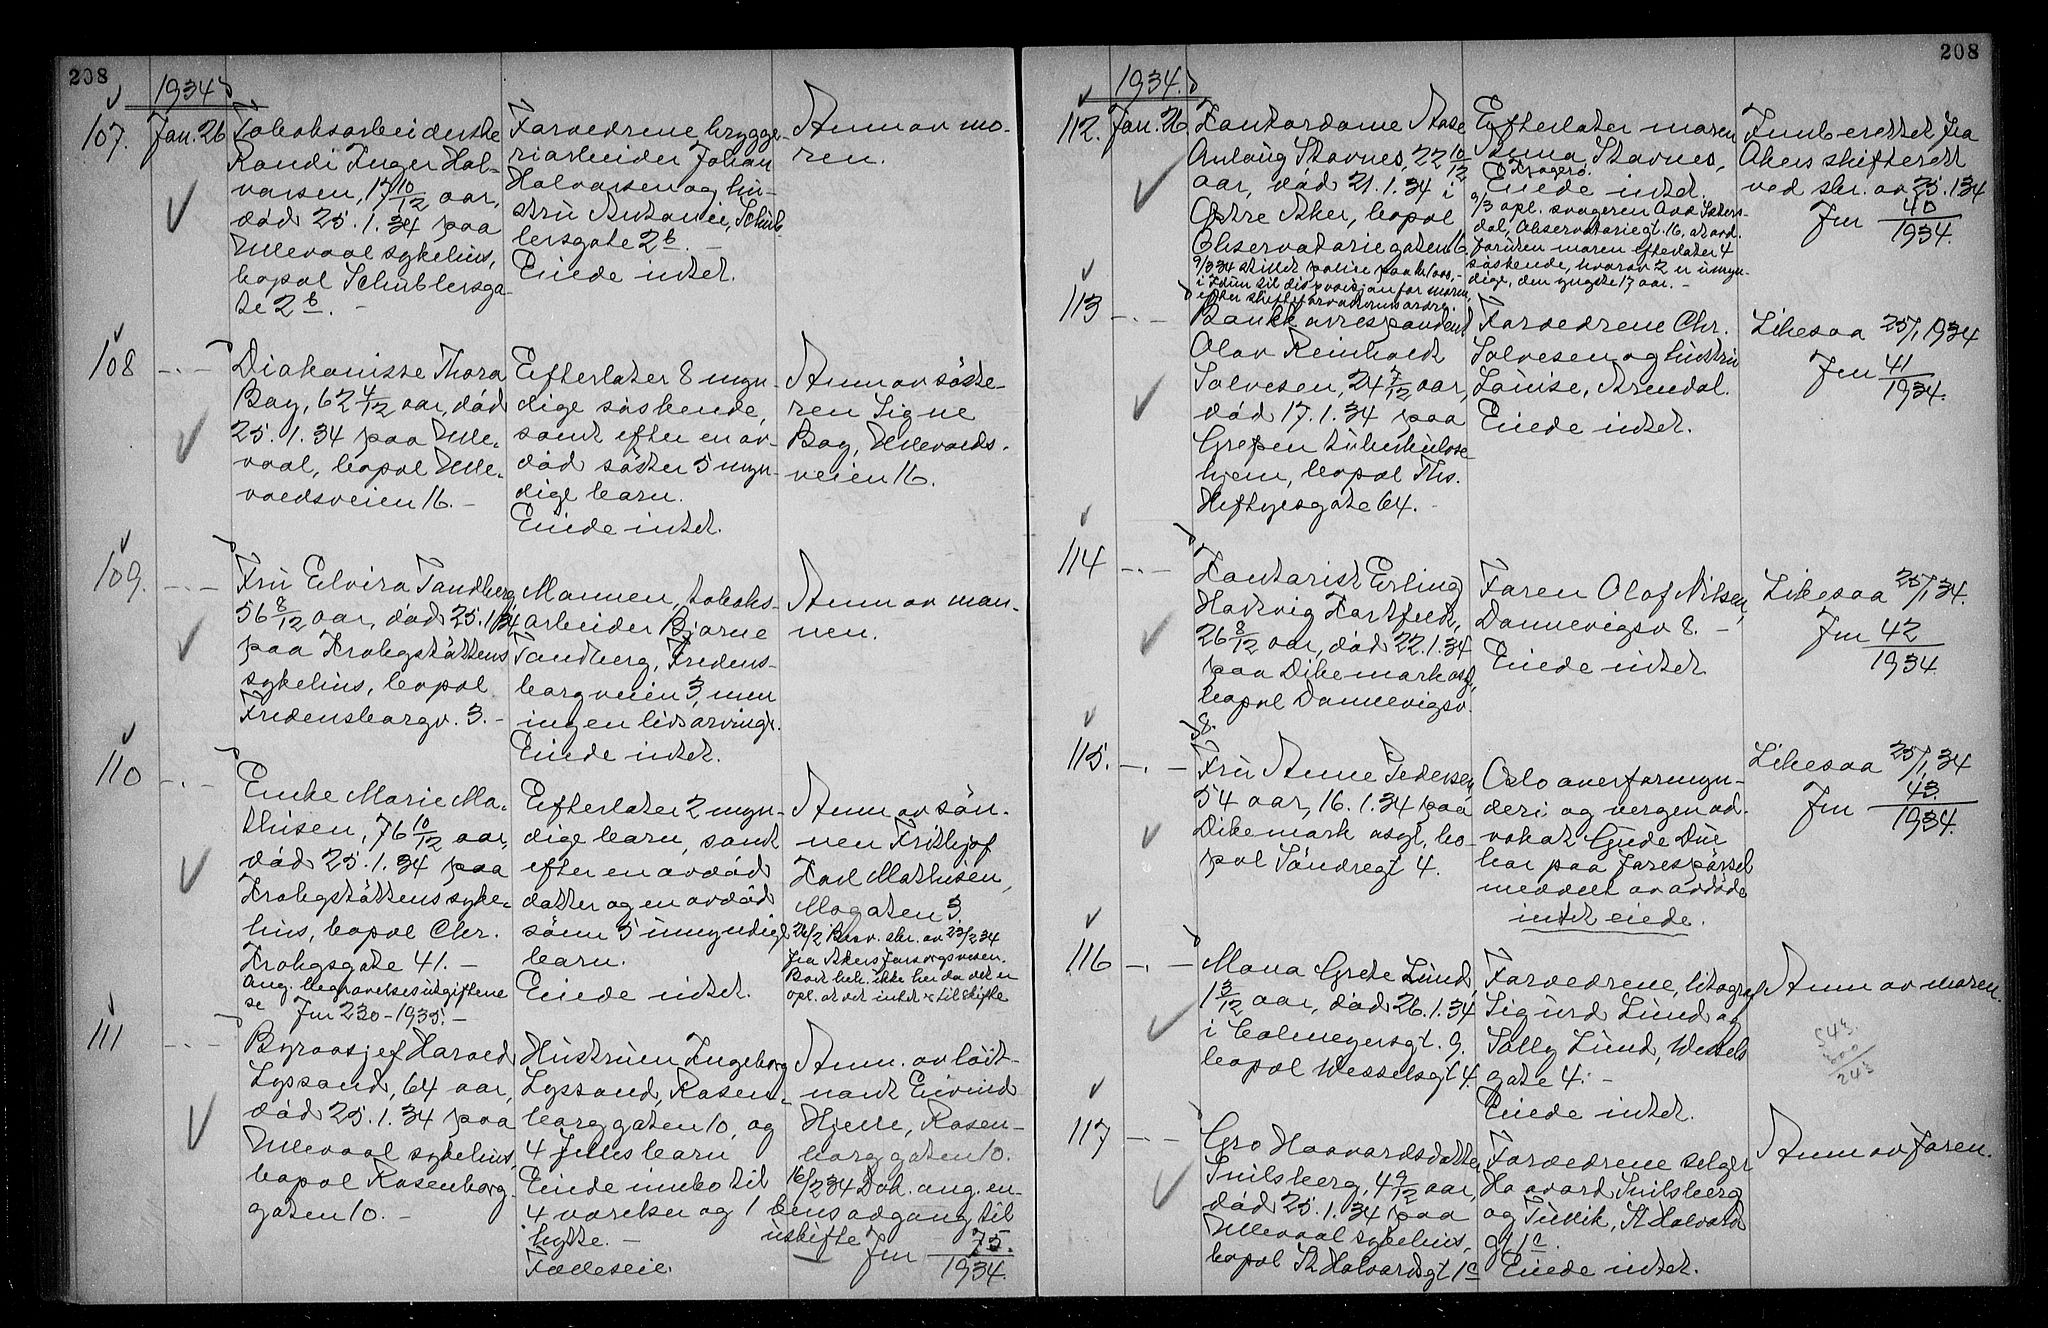 208
1934
107.
Jan. 26
Tobaksarbeiderske
Randi Inger Hal-
varsen, 17 10/12 aar,
död 25.1.34 paa
Ullevaal sykehus,
bopel Schüblersga-
te 2b. -
Forældrene brygge-
riarbeider Johan
Halvarsen og hu-
stru Antonie, Schüb-
lersgate 2b. -
Eiede intet.
Anm av mo-
ren.
108 -.-
Diakonisse Thora
Bay, 62 4/12 aar, död
25.1.34 paa Ulle-
vaal, bopel Ulle-
voldsveien 16. -
Efterlater 8 myn-
dige söskende,
samt efter en av-
död söster 5 myn-
dige barn.
Eiede intet.
Anm av söste-
ren Signe
Bay, Ullevolds-
veien 16.
109. -.-
Fru Elvira Tandberg
56 8/12 aar, död 25.1.34
paa Krohgstöttens
sykehus, bopel
Fredensborgv. 3. -
Mannen, tobaks-
arbeider Bjarne
Tandberg, Fredens-
borgveien 3, men
ingen livsarving.
Eiede intet.
Anm av man-
nen.
110 -.-
Enke Marie Ma-
thisen, 76 10/12 aar,
död 25.1.34 paa
Krohgstöttens syke-
hus, bopel Chr.
Krohgsgate 41. -
Ang. begravelsesutgiftene
se Jnr 230-1935. -
Efterlater 2 myn-
dige barn, samt
efter en avdöd
datter og en avdöd
sönn 5 umyndige
barn.
Eiede intet.
Anm av sön-
nen Frithjof
Karl Mathisen,
Mogaten 3.
26/2 Besv. skr. av 23/2 34
fra Akers forsorgsvesen.
Boet beh. ikke her da det er
opl. at det intet er til skifte
111 -.-
Byraasjef Harald
Lyssand, 64 aar,
död 25.1.34 paa
Ullevaal sykehus,
bopel Rosenborg-
gaten 10. -
Hustruen Ingeborg
Lyssand, Rosen-
borggaten 10, og
4 fellesbarn
Eiede innbo til
4 værelser og 1
hytte. -
Fælleseie.
Anm. av löit-
nant Eivind
Hjelle, Rosen-
borggaten 10.
16/2 34 Dok. ang. en-
kens adgang til
uskifte Jnr 75./1934.
208
1934.
112. Jan. 26
Kontordame Aase
Anlaug Stavnes, 22 10/12
aar, död 21.1.34 i
Östre Aker, bopel
Observatoriegaten 16
9/3 34 stillet police paa kr 1000,-
i Idun til disposisjon for moren,
efter skifteforvalterens ordre.
Efterlater moren
Anna Stavnes,
Kragerö.
Eiede intet.
9/3 opl. svogeren Odd Sæters-
dal, Observatoriegt. 16, at avd.
foruten moren efterlater 4
söskende, hvorav 2 er umyn-
dige, den yngste 17 aar. -
Innberettet fra
Akers skifterett
ved skr. av 25.1 34
Jnr 40/1934.
113 -.-
Bankkorrespondent
Olav Reinholdt
Salvesen, 24 7/12 aar,
död 17.1.34 paa
Grefsen tuberkulose
hjem, bopel Ths.
Heftyesgate 64. -
Forældrene Chr.
Salvesen og hustru
Louise, Arendal.
Eiede intet.
Likesaa 25/1 1934
Jnr 41/1934.
114 -.-
Kontorist Erling
Hartvig Kortfeldt,
26 8/12 aar, död 22.1.34
paa Dikemark asyl,
bopel Dannevigsv.
8.
Faren Olaf Nilsen,
Dannevigsv 8. -
Eiede intet
Likesaa 25/1 34.
Jnr 42/1934
115. -.-
Fru Anne Pedersen
54 aar, 16.1.34 paa
Dikemark asyl, bo-
pel Söndregt 4.
Oslo overformyn-
deri og vergen ad-
vokat Gude Due
har paa forespörsel
meddelt av avdöde
intet eiede.
Likesaa 25/1 34
Jnr 43./1934.
116 -.-
Mona Grete Lund,
1 3/12 aar, död 26.1.34
i Colmeyersgt. 9.
bopel Wesselsgt 4.
Forældrene, litograf
Sigurd Lund og
Sally Lund, Wessels
gate 4. -
Eiede intet.
Anm av moren.
117 -.-
Gro Haavardsdatter
Snilsberg, 4 9/12 aar,
död 25.1.34 paa
Ullevaal sykehus,
bopel St Halvardsgt 1c
Forældrene selger
Haavard Snilsberg
og Tullik, St Halvards
gt 1c.
Eiede intet.
Anm av faren.